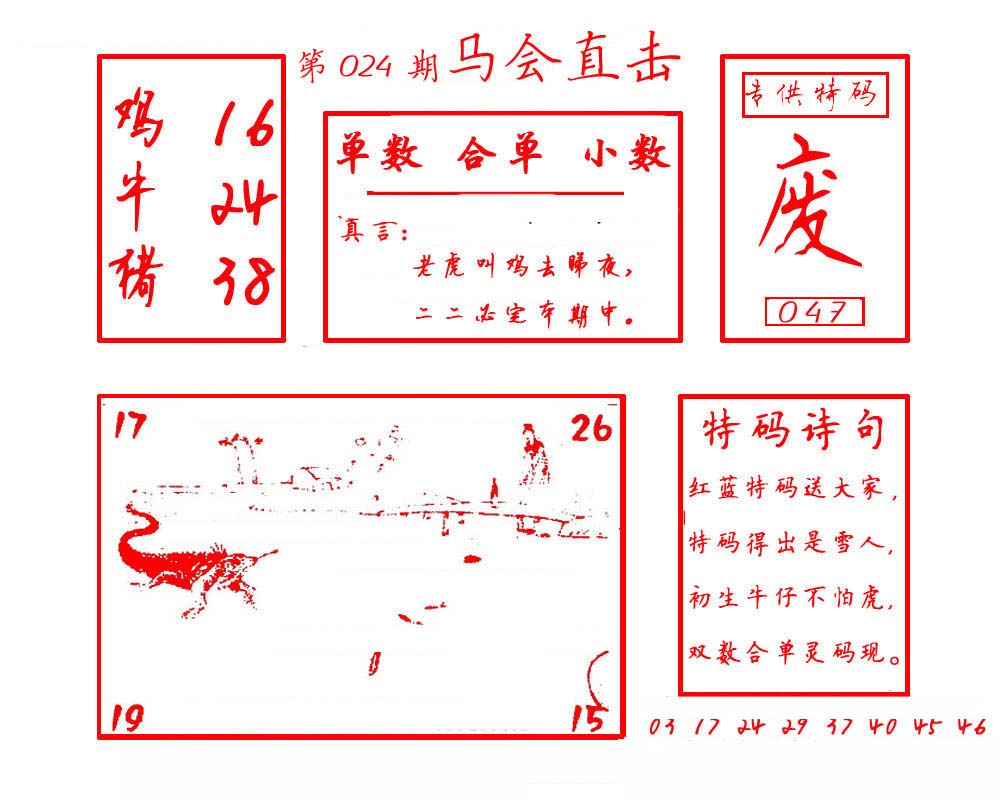 第 024 期 马会直击
鸡 16
牛 24
猪 38
单数 合单 小数
真言：
老虎叫鸡去睇夜，
二二必定本期中。
专供特码
废
047
17
26
19
15
特码诗句
红蓝特码送大家，
特码得出是雪人，
初生牛仔不怕虎，
双数合单灵码现。
03 17 24 29 37 40 45 46